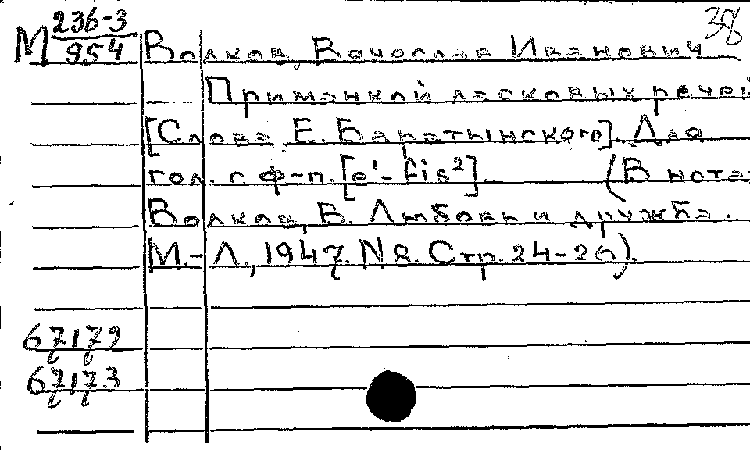 38
М 236-3
954
Волков, Вячеслав Иванович
Приманкой ласковых речей
[Слова Е. Баратынского]. Для
гол. с ф-п. [e¹-fis²] (В нотах:
Волков, В. Любовь и дружба.
М.-Л., 1947. N 8. Стр. 24-26).
67179
67173